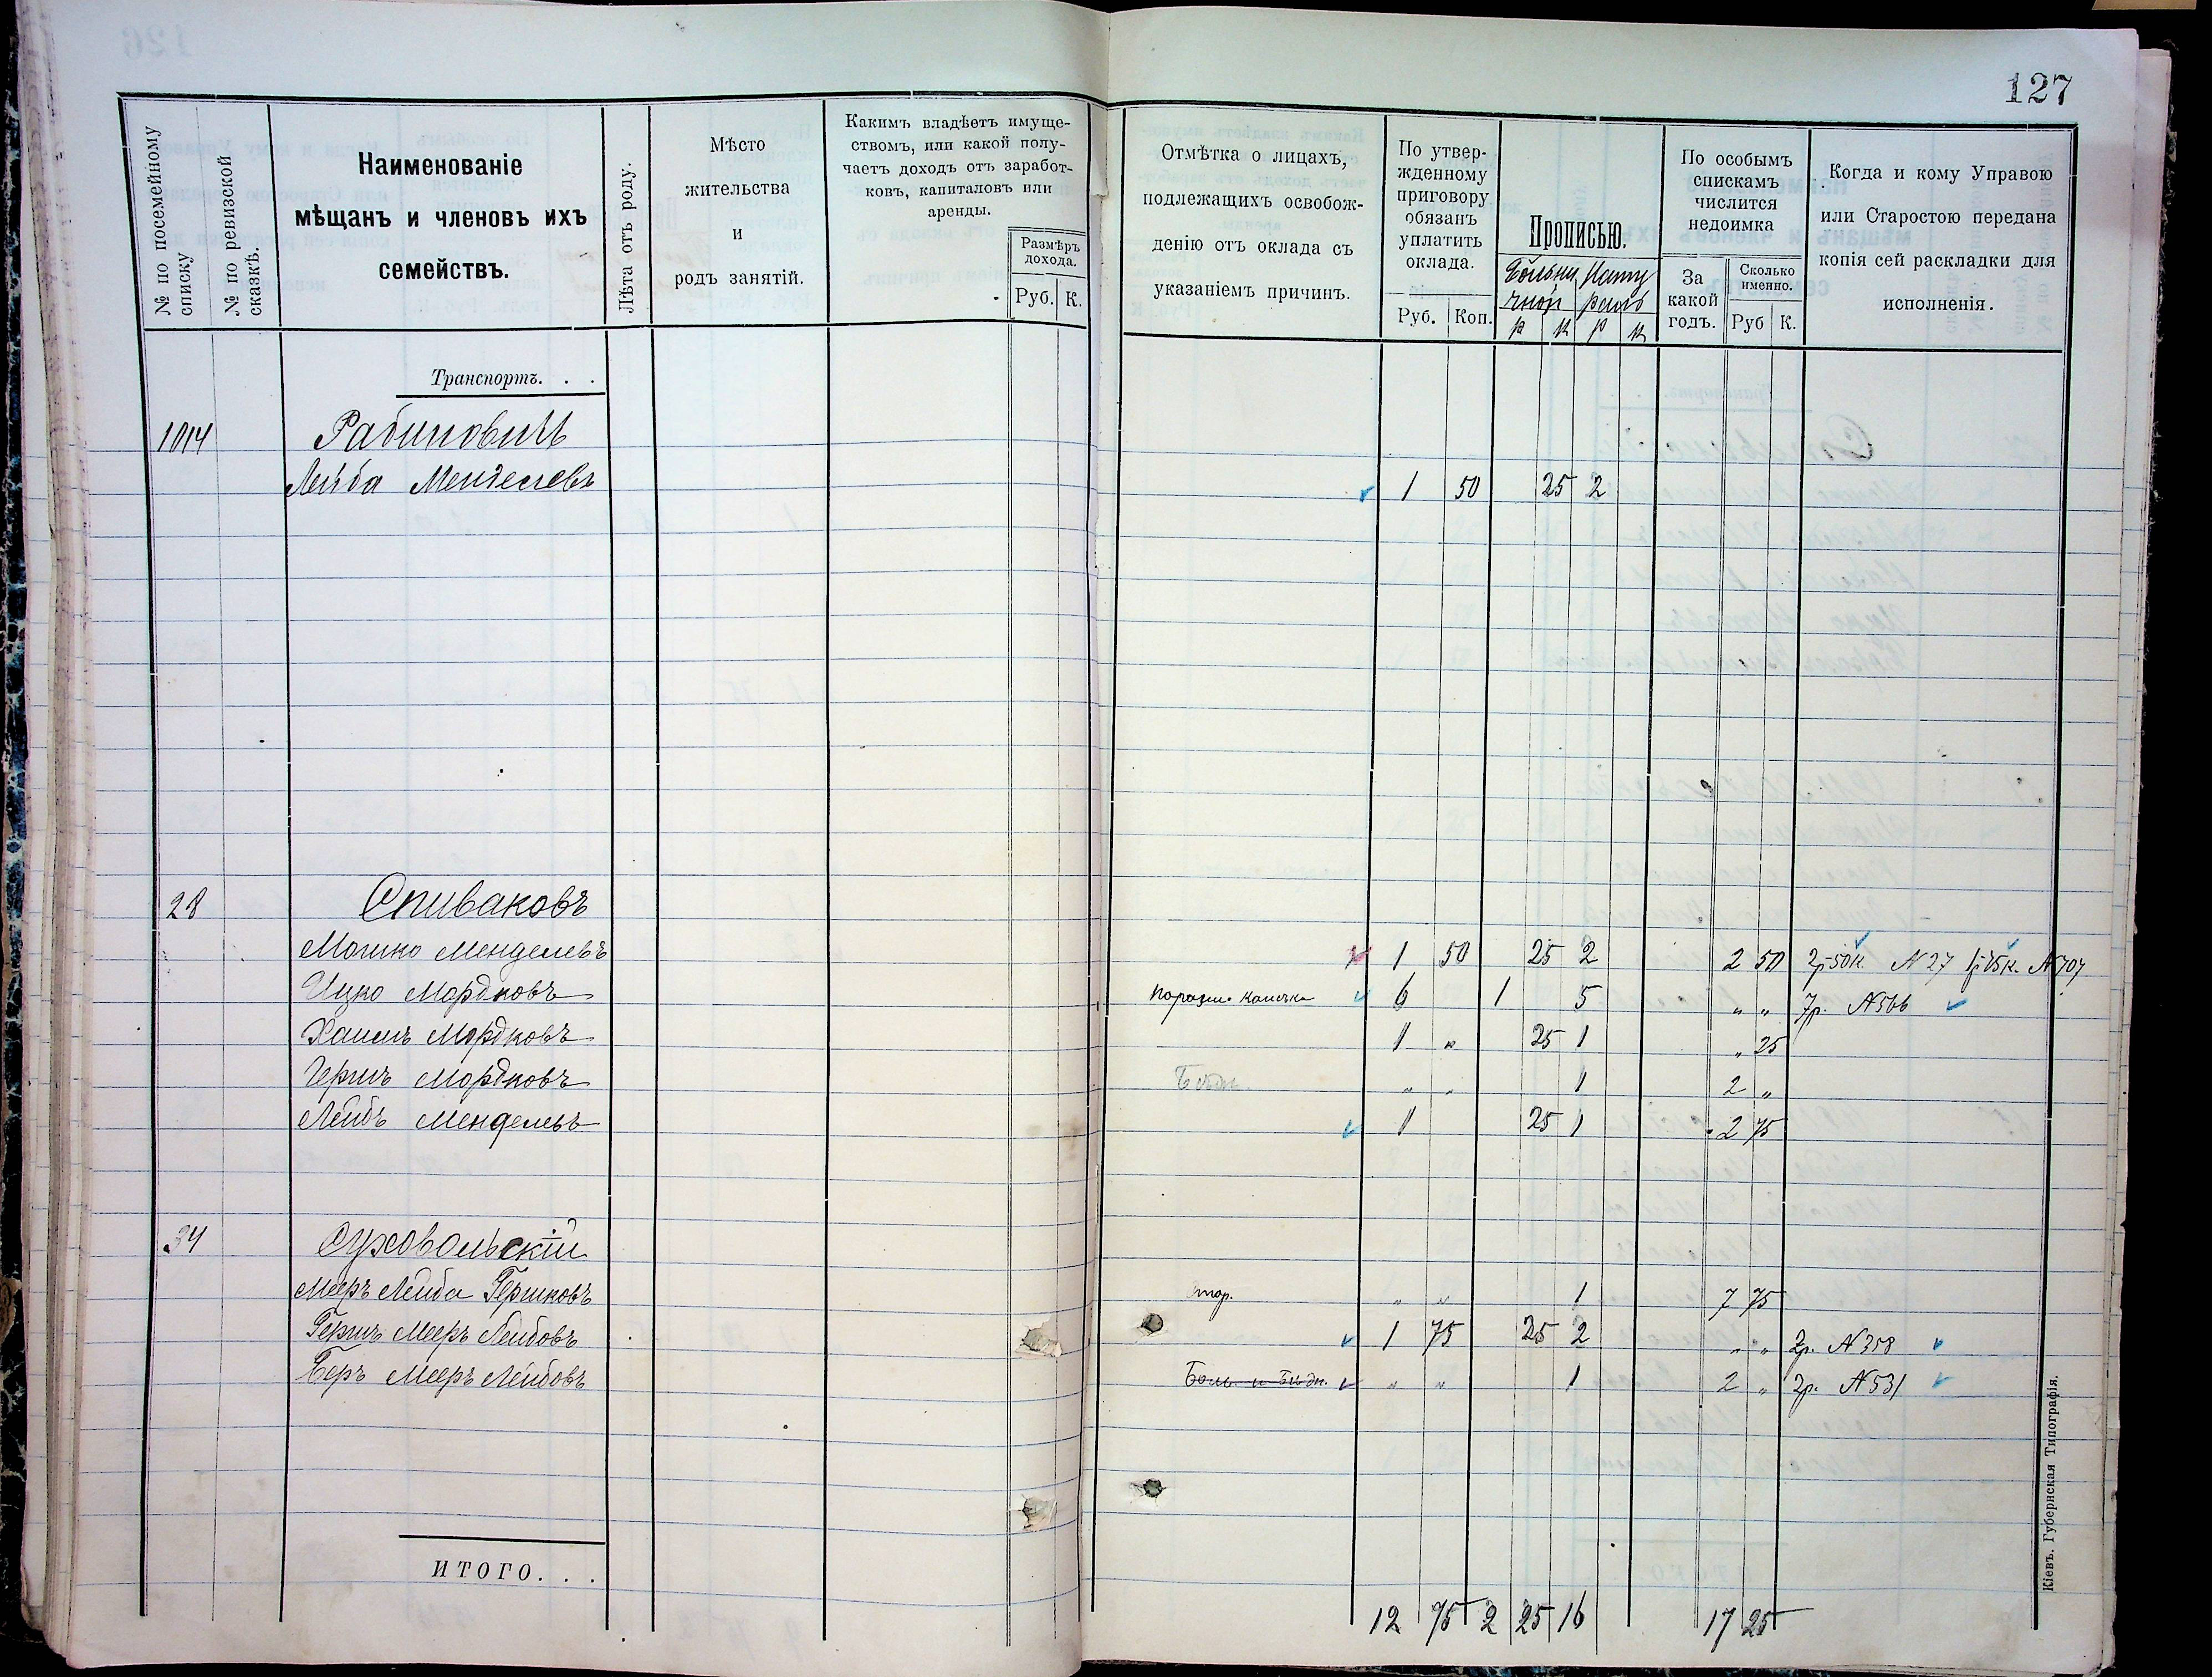 127
№ по посемейному списку
№ по ревизской сказкѣ.
Наименованіе
мѣщанъ и членовъ ихъ
семействъ.
Лѣта отъ роду.
Мѣсто
жительства
и
родъ занятій.
Какимъ владѣетъ имуще-
ствомъ, или какой полу-
чаетъ доходъ отъ заработ-
ковъ, капиталовъ или
аренды.
Размѣръ
дохода.
Руб. К.
Отмѣтка о лицахъ,
подлежащихъ освобож-
денію отъ оклада съ
указаніемъ причинъ.
По утвер-
жденному
приговору
обязанъ
уплатить
оклада.
Руб. Коп.
Прописью.
Больни Нату
чной ралъ
р к р к
По особымъ
спискамъ
числится
недоимка
За
какой
годъ.
Сколько
именно.
Руб К.
Когда и кому Управою
или Старостою передана
копія сей раскладки для
исполненія.
Транспортъ. . .
1014 Рабиновичъ
Лейба Менделевъ 1 50 25 2
28 Спиваковъ
Мошко Менделевъ 1 50 25 2 2 50 2р 50к. N 27 1р 75к. N 707
Ицко Мордковъ 6 1 5 „ „ 7р. N 566
Хаимъ Мордковъ 1 „ 25 1 „ 25
Гершъ Мордковъ Бѣдн. „ „ 1 2 „
Лейбъ Менделевъ 1 25 1 2 75
34 Суховольскій
Мееръ Лейба Гершковъ „ „ 1 7 75
Гершъ Мееръ Лейбовъ 1 75 25 2 „ „ 2р. N 358
Беръ Мееръ Лейбовъ Боль. и Бѣдн. „ „ 1 2 „ 2р. N 531
ИТОГО. . .
12 75 2 25 16 17 25
Кіевъ. Губернская Типографія.